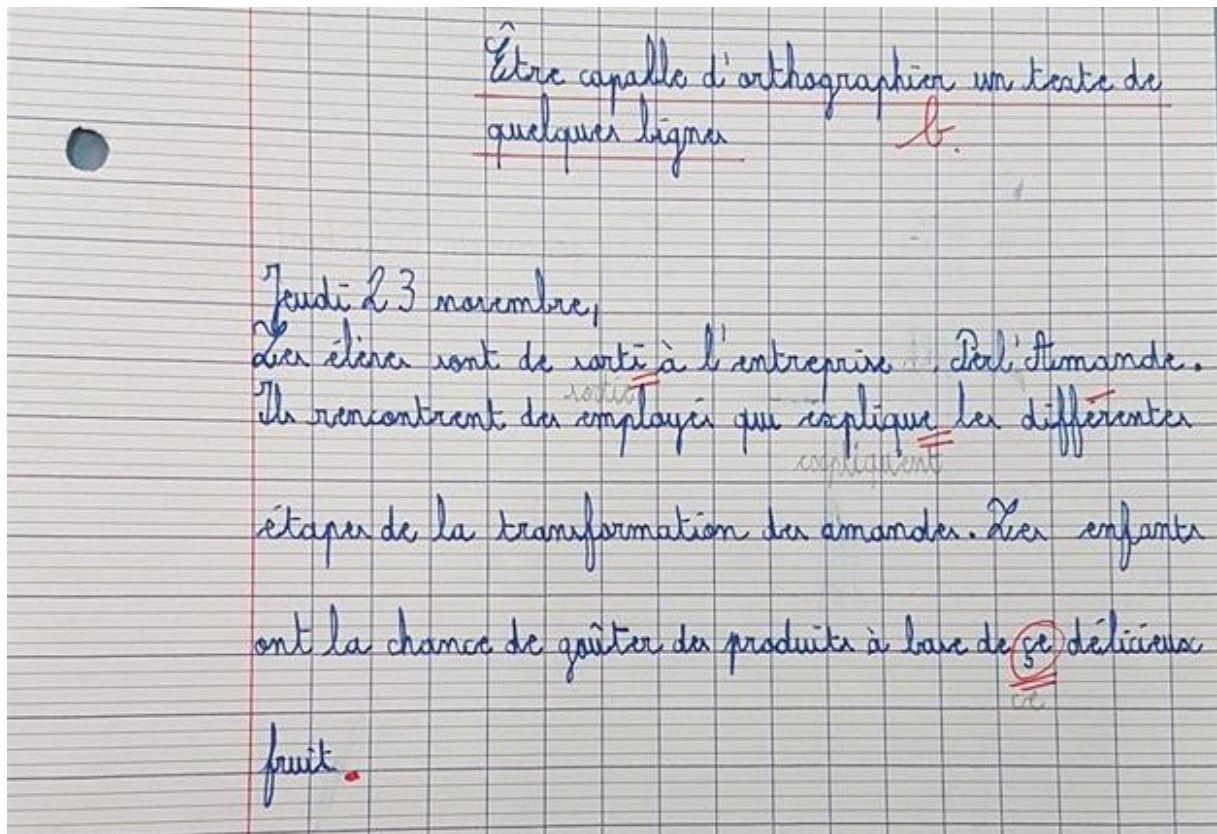 Être capable d'orthographier un texte de
quelques lignes b.
Jeudi 23 novembre,
Les élèves sont de sorti à l'entreprise Perl'Amande.
sortie
Ils rencontrent des employés qui explique les différentes
expliquent
étapes de la transformation des amandes. Les enfants
ont la chance de goûter des produits à base de çe délicieux
ce
fruit.